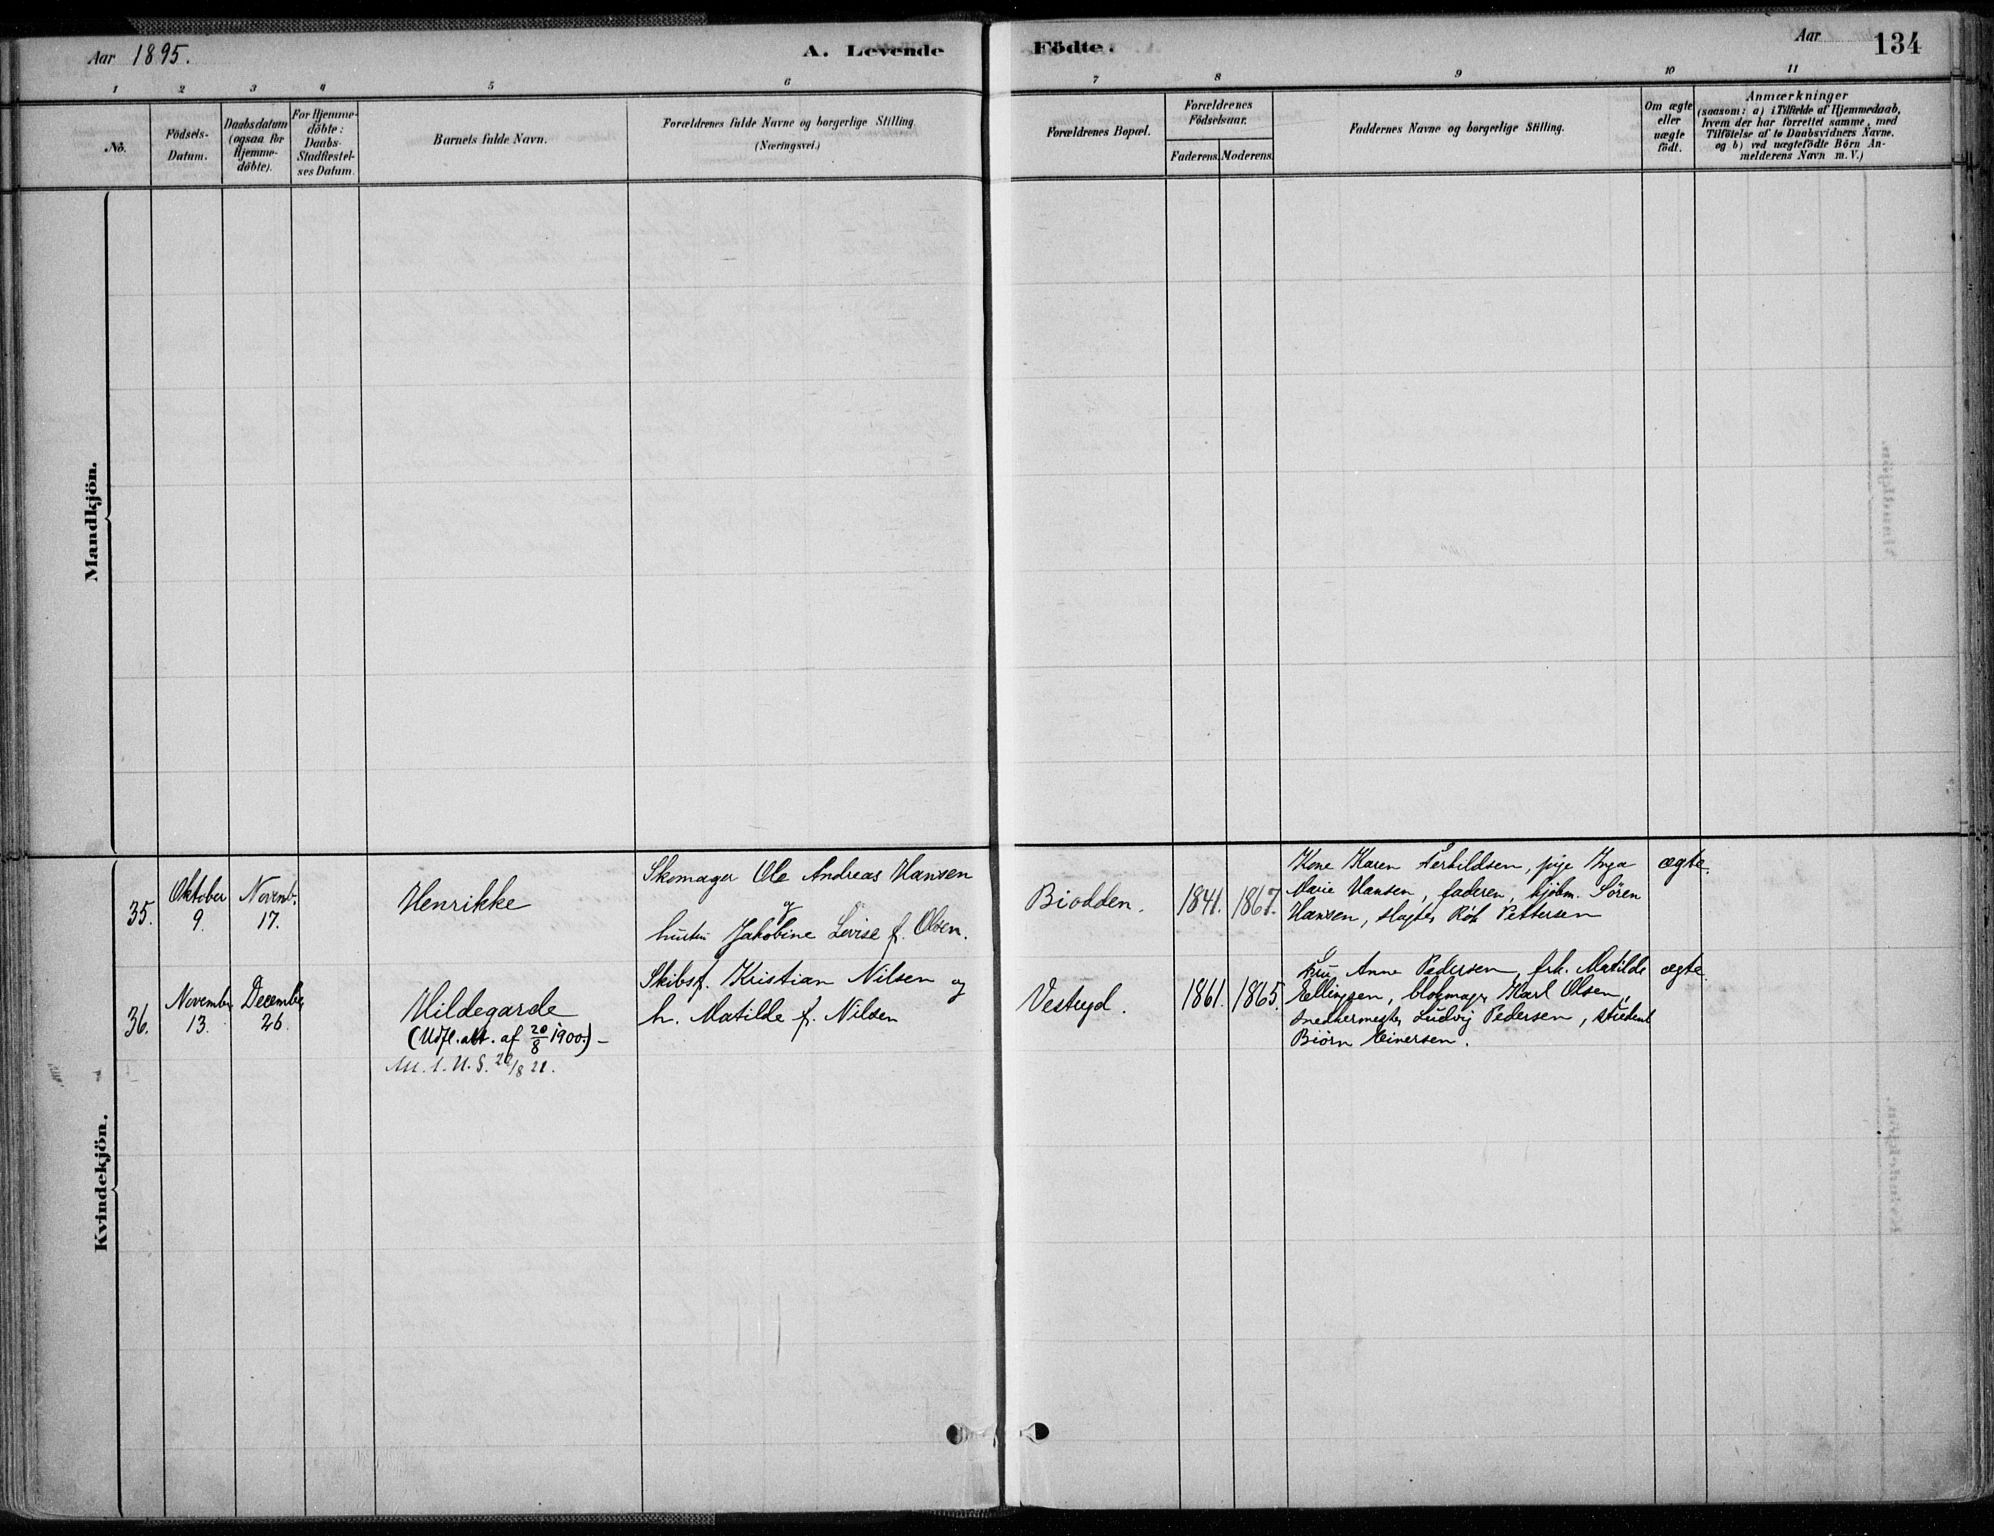 Aar 1895.
A. Levende
Födte.
Aar
134
1 2 3 4 5 6
7 8 9 10 11
No.
Födsels-
Datum.
Daabsdatum
(ogsaa for
Hjemme-
döbte).
For Hjemme-
döbte:
Daabs-
Stadfæstel-
ses Datum.
Barnets fulde Navn.
Forældrenes fulde Navne og borgerlige Stilling
(Næringsvei.)
Forældrenes Bopæl.
Forældrenes
Födselsaar.
Faderens.
Moderens.
Faddernes Navne og borgerlige Stilling.
Om ægte
eller
uægte
födt.
Anmærkninger
(saasom: a) i Tilfælde af Hjemmedaab,
hvem der har forrettet samme, med
Tilföielse af to Daabsvidners Navne.
og b) ved uægtefödte Börn An-
melderens Navn m. V.)
Mandkjön.
Kvindekjön.
35.
Oktober
9.
Novemb.
17.
Henrikke
Skomager Ole Andreas Hansen
og
hustru Jakobine Lovise f. Olsen.
Biodden.
1841.
1867.
Kone Karen Terkildsen, pige Inga
Marie Hansen, faderen, kjöbm. Sören
Hansen, slagter Pettersen
ægte.
36.
November
13.
December
26.
Hildegarde
(Udfl. att. af 20/8 1900.) –
Skibsf. Kristian Nilsen og
h. Matilde f. Nilsen
Vestregd.
1861.
1865.
Fru Anne Pedersen, frk. Matilde
Ellingsen, blokmager Karl Olsen,
snedkermester Ludvig Pedersen, student
Biörn Einersen.
ægte.